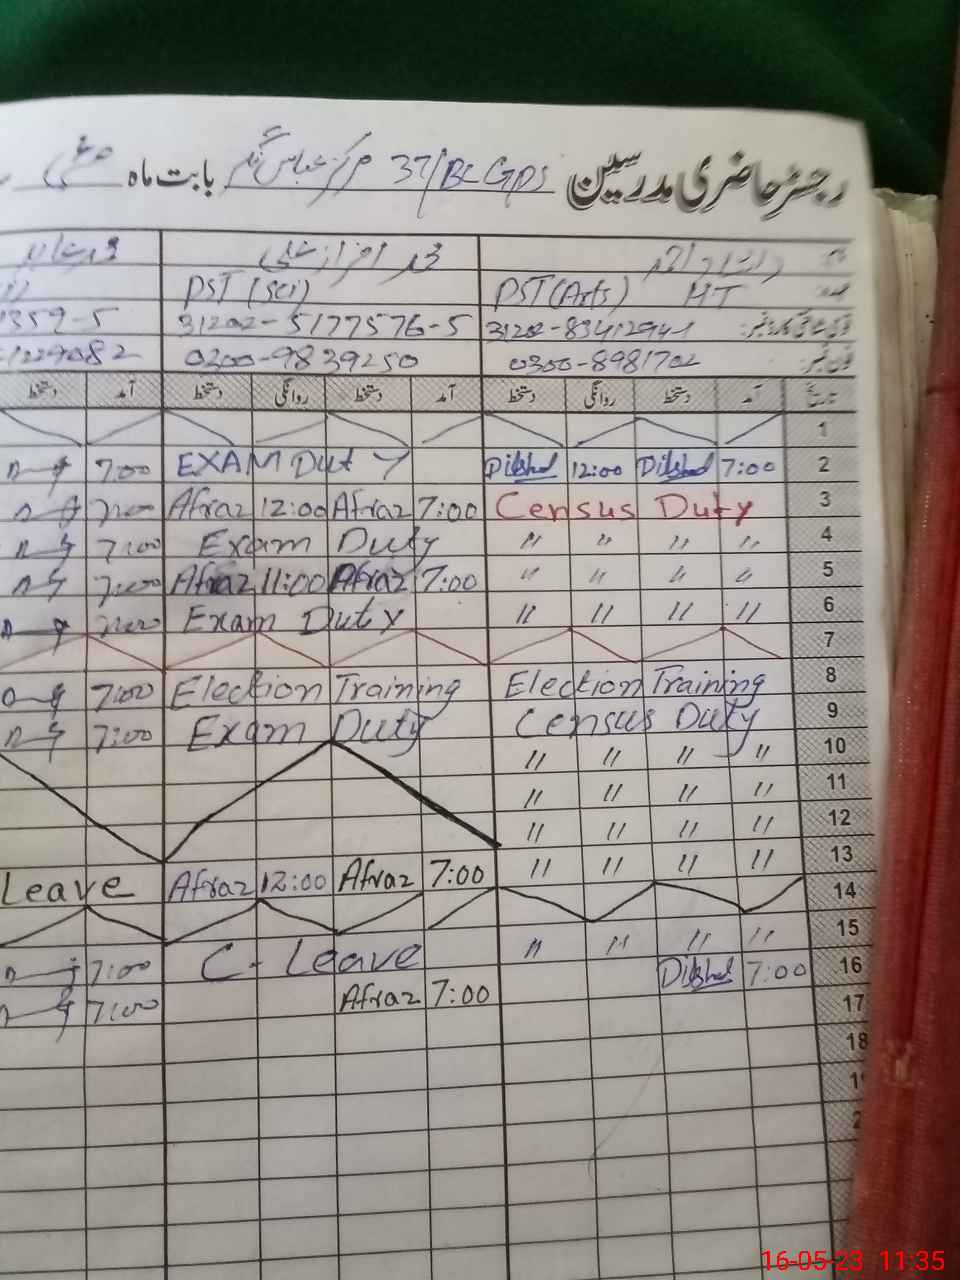 رجسٹر حاضری مدرسین 37/BC GPS مرکز عباس نگر بابت ماہ مئی
نام
عہدہ PST (Arts) HT PST (Sci)
قومی شناختی کارڈ نمبر: 31202-5177576-5 359-5
فون نمبر: 0300-8981702 0300-9839250 1229082
تاریخ آمد دستخط روانگی دستخط آمد دستخط روانگی دستخط آمد دستخط
1
7:00 EXAM Duty Dilshad 12:00 Dilshad 7:00 2
7:00 Afraz 12:00 Afraz 7:00 Census Duty 3
7:00 Exam Duty " " " " 4
7:00 Afraz 11:00 Afraz 7:00 " " " " 5
7:00 Exam Duty " " " " 6
7
7:00 Election Training Election Training 8
7:00 Exam Duty Census Duty 9
" " " " 10
" " " " 11
" " " " 12
Leave Afraz 12:00 Afraz 7:00 " " " " 13
14
7:00 C- Leave " " " " 15
7:00 Afraz 7:00 Dilshad 7:00 16
17
18
16-05-23 11:35